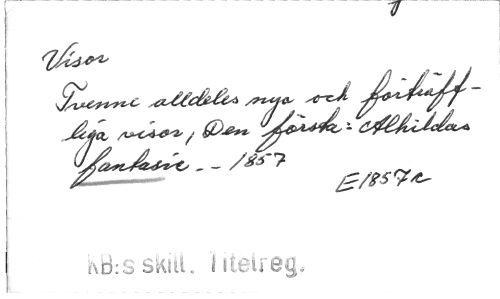 Visor
Tvenne alldeles nya och förträff-
liga visor, Den första: Alhildas
fantasie. -- 1857
E1857r
KB:s skill. Titelreg.